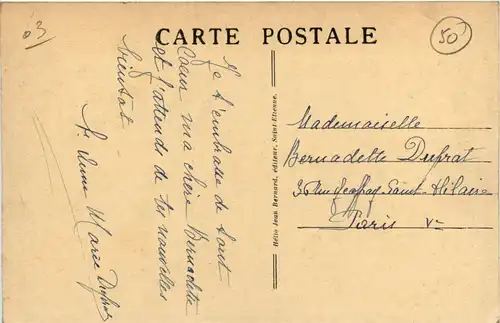 03
50
CARTE POSTALE
Je t'embrasse de tout
Coeur ma chère Bernadette
et j'attends de tes nouvelles
bientot
Sr Anne Marie Duprat
Hélio Jean Bernard, éditeur, Saint-Etienne.
Mademoiselle
Bernadette Duprat
36 Rue Geoffroy Saint-Hilaire
Paris V